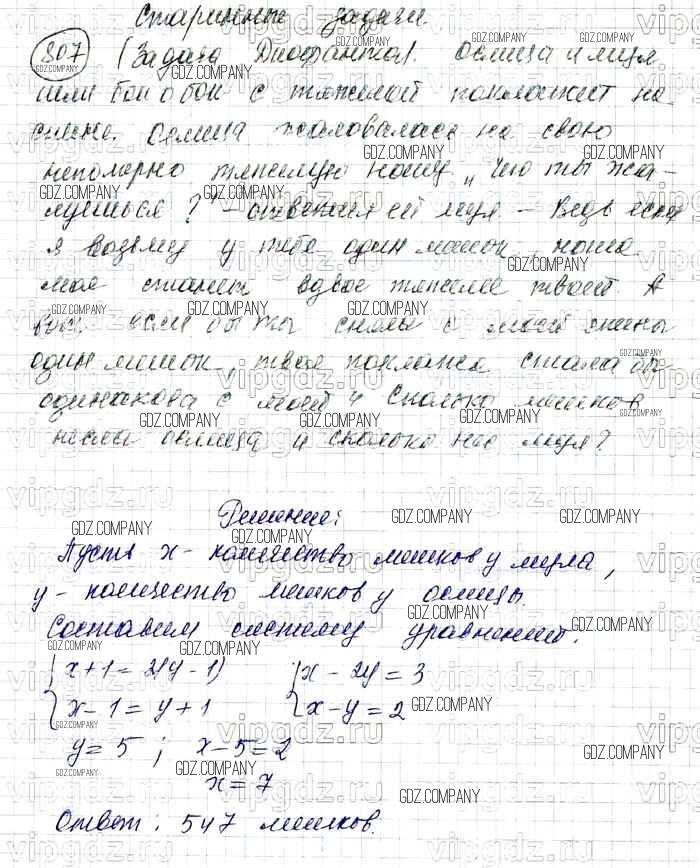 Старинные задачи.
807 (Задача Диофанта). Ослица и мул
шли бок о бок с тяжелой поклажей на
спине. Ослица жаловалась на свою
непомерно тяжелую ношу. „Что ты жа-
луешься? – ответил ей мул – Ведь если
я возьму у тебя один мешок, ноша
моя станет вдвое тяжелее твоей. А
вот если бы ты сняла с моей спины
один мешок, твоя поклажа стала бы
одинакова с моей“. Сколько мешков
несла ослица и сколько нес мул?
Решение:
Пусть x – количество мешков у мула,
y – количество мешков у ослицы.
Составим систему уравнений.
{ x + 1 = 2(y - 1) { x - 2y = 3
x - 1 = y + 1 x - y = 2
y = 5 ; x - 5 = 2
x = 7
Ответ: 5 и 7 мешков.
GDZ.COMPANY
vipgdz.ru